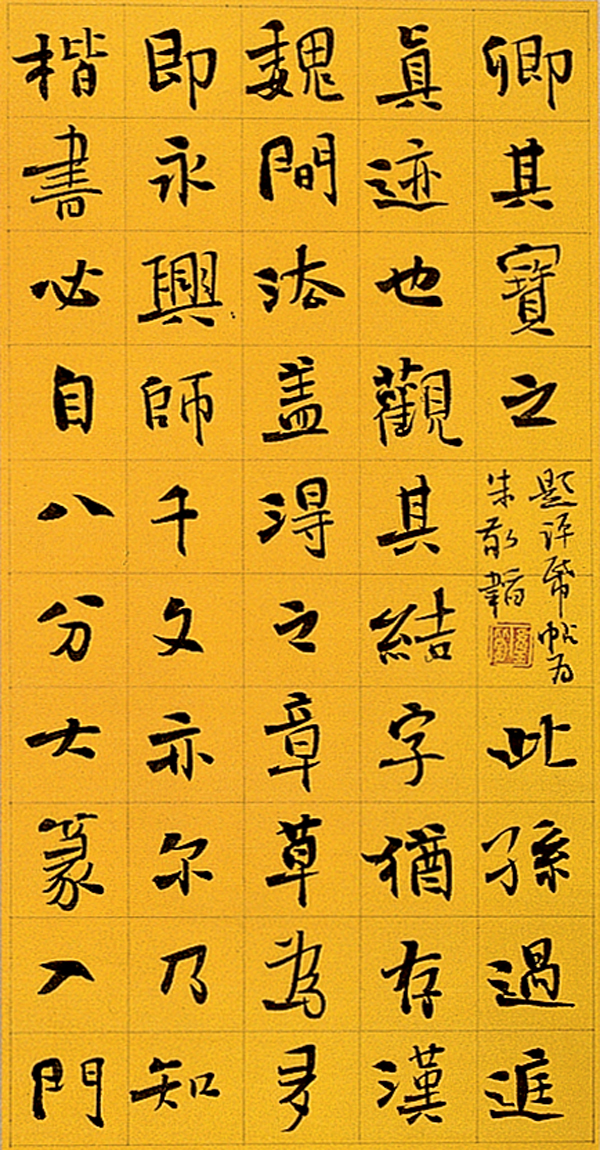 卿其寶之
題評帋帖为
朱敬韜
此孫過庭
眞迹也觀其結字猶存漢
魏間法盖得之章草為多
即永興師千文亦尔乃知
楷書必自八分大篆入門